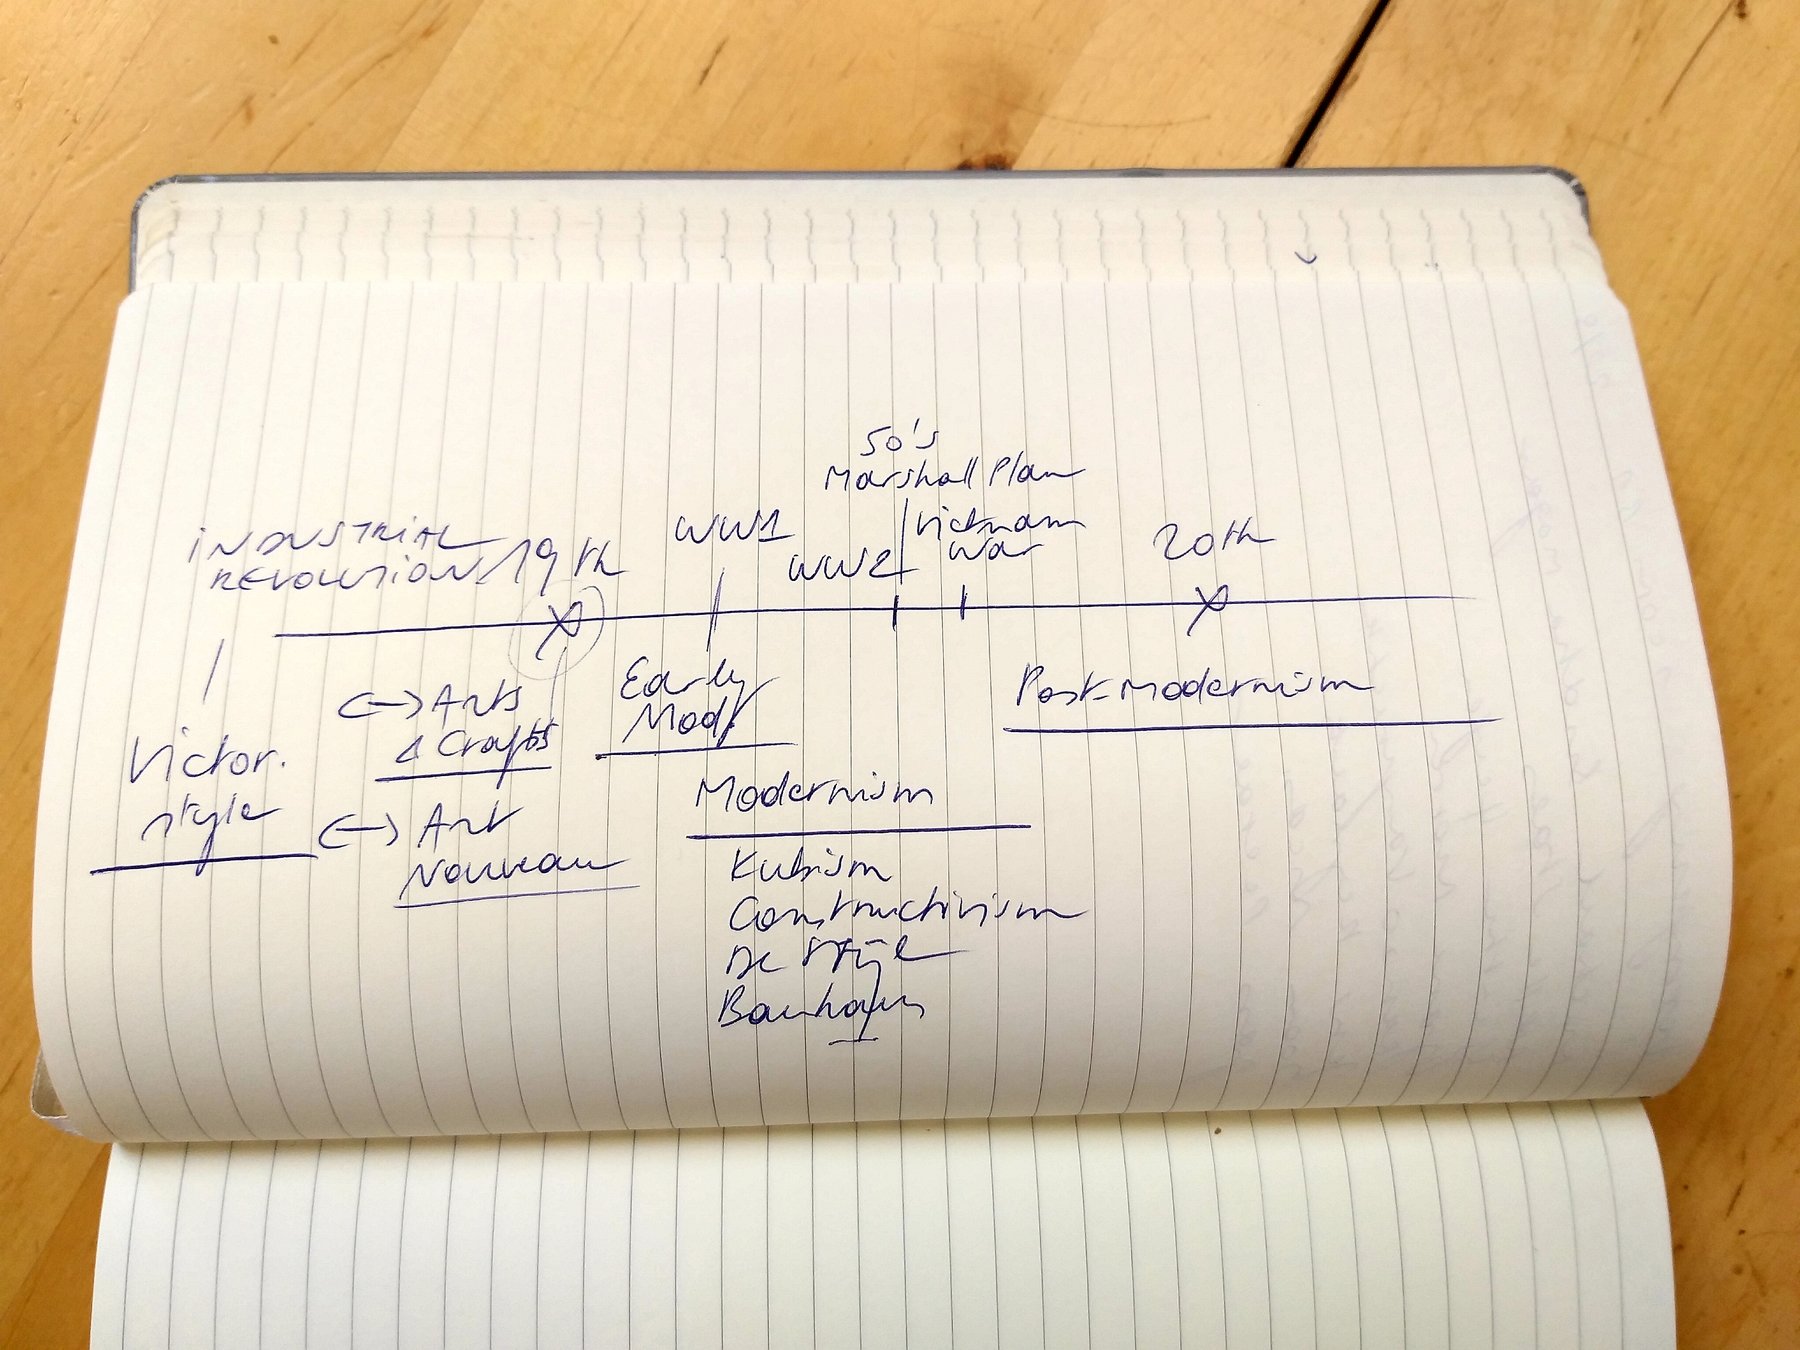 50's
Marshall Plan
INDUSTRIAL
REVOLUTION
19th
WW1
WW2
Vietnam
War
20th
Victor.
style
<-> Arts
& Crafts
<-> Art
Nouveau
Early
Mod.
Modernism
Kubism
Constructivism
De Stijl
Bauhaus
Post-modernism